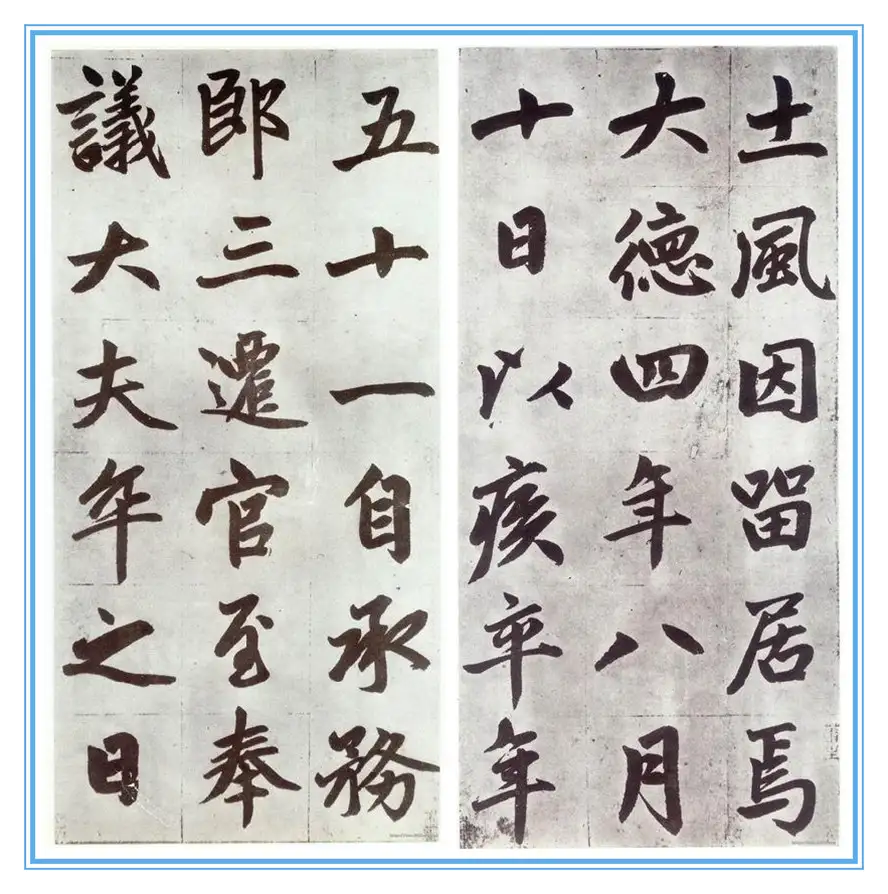 土風因留居焉
大德四年八月
十日以疾卒年
五十一自承務
郎三遷官至奉
議大夫卒之日